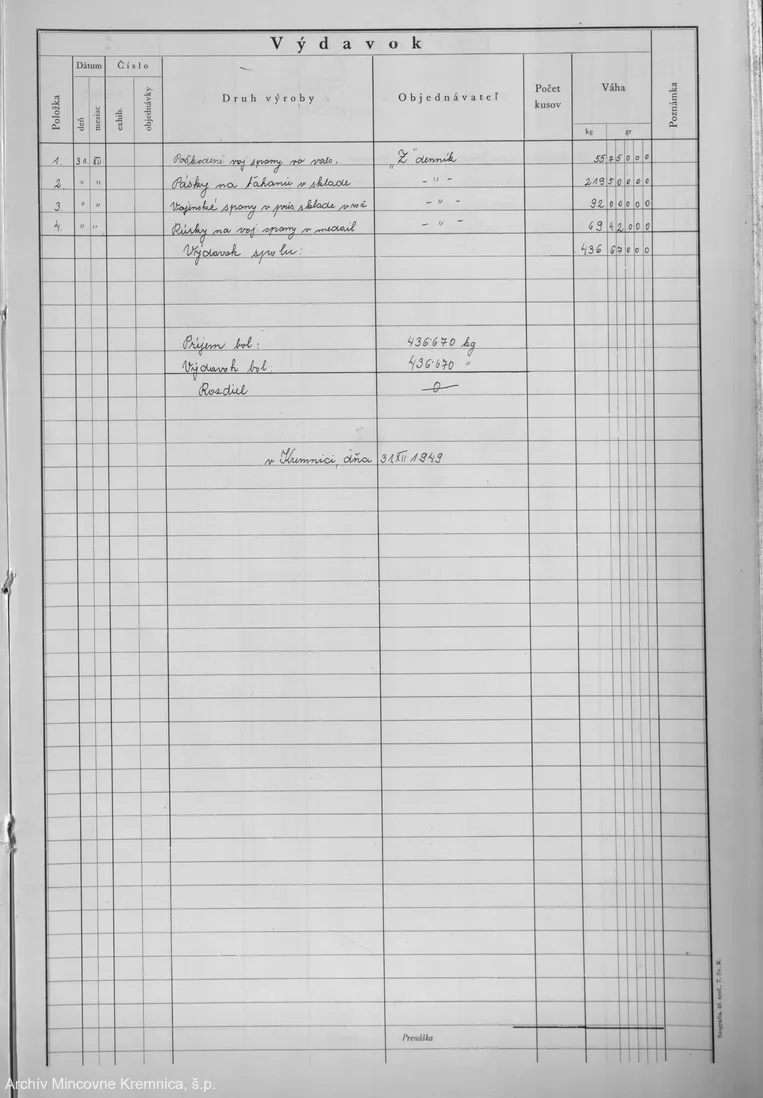 Výdavok
Položka
Dátum
deň
mesiac
Číslo
exhib.
objednávky
Druh výroby
Objednávateľ
Počet kusov
Váha
kg
gr
Poznámka
1. 31. XII. Poškodené voj spony vo valc. „Z" denník 55 750 0 0
2. " " Pásky na ťahanie v sklade - " - 219 50000
3. " " Vojenské spony v sklade - " - 92 00000
4. " " Rúrky na voj spony v medail - " - 69 42000
Výdavok spolu: 436 67000
Príjem bol: 436·670 kg
Výdavok bol: 436·670 "
Rozdiel 0
v Kremnici, dňa 31 XII 1949
Prenáška
Archív Mincovne Kremnica, š.p.